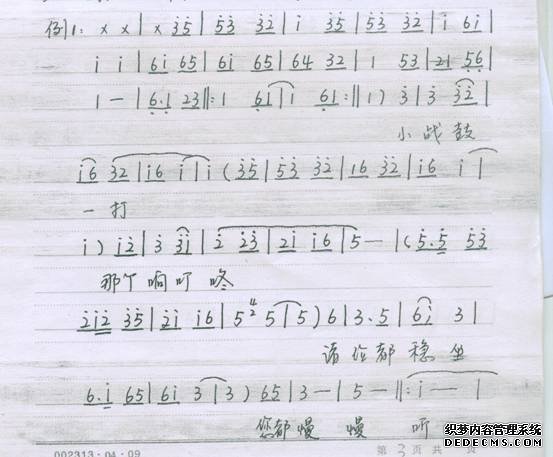 例1: x x | x 3̇5̇ | 5̇3̇ 3̇2̇ | i 3̇5̇ | 5̇3̇ 3̇2̇ | i 6i |
i i | 6i 65 | 6i 65 | 64 32 | 1 53 | 21 5̣6̣ |
1 — | 6̣·1 23 ‖: 1 6̣1 | 1 6̣1 :‖ 1 ) 3̇ | 3̇ 3̇2̇ |
小战鼓
i6 3̇2̇ | i6 i | i ( 3̇5̇ | 5̇3̇ 3̇2̇ | i6 3̇2̇ | i6 i |
一打
i ) i2̇ | 3̇ 3̇i | 2̇ 2̇3̇ | 2̇i i6 | 5 — | ( 5̇·5̇ 5̇3̇
那个响叮咚
2̇i2̇ 3̇5̇ | 2̇i i6 | 5 5 | 5 ) 6 | 3·5 | 6i 3 |
诸位都稳坐
6·i 65 | 6i 3 | 3 ) 65 | 3 — | 5 — ‖: i — |
您都慢慢听
002313·04·09 第3页共 页
织梦内容管理系统
DEDECMS.COM